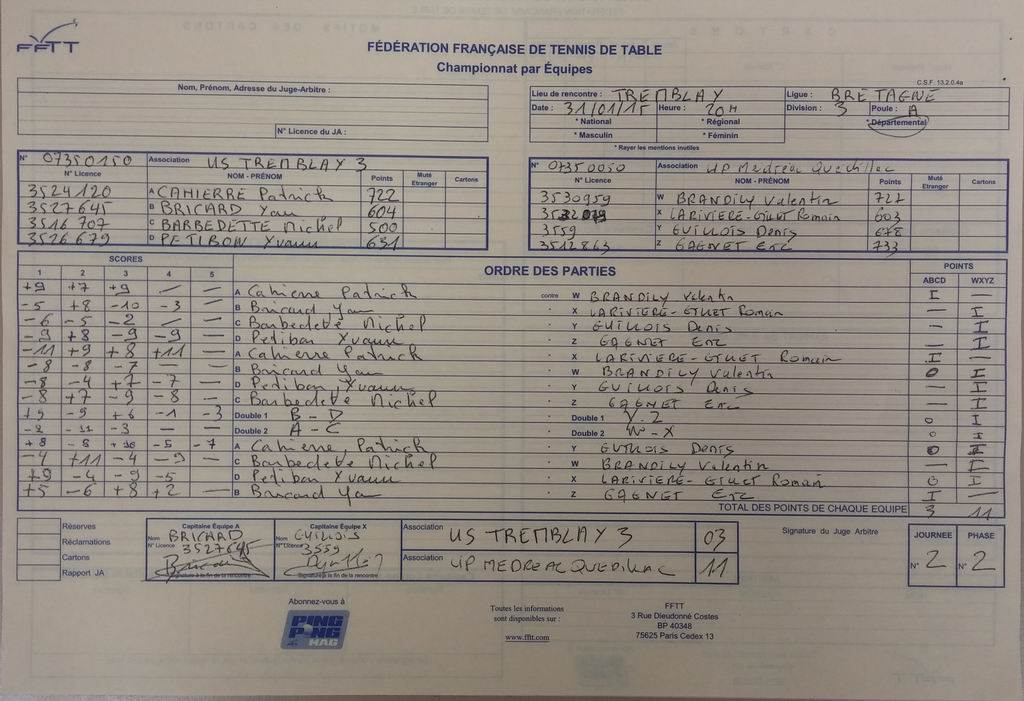 FFTT
FÉDÉRATION FRANÇAISE DE TENNIS DE TABLE
Championnat par Équipes
C.S.F. 13.2.0.4a
Nom, Prénom, Adresse du Juge-Arbitre :
N° Licence du JA :
Lieu de rencontre : TREMBLAY Ligue : BRETAGNE
Date : 31/01/15 Heure : 20H Division : 3 Poule : A
* National * Régional * Départemental
* Masculin * Féminin
* Rayer les mentions inutiles
N° 07350150 Association US TREMBLAY 3
N° Licence NOM - PRÉNOM Points Muté Etranger Cartons
3524120 A CAHIERRE Patrick 722
3527645 B BRICARD Yan 604
3516707 C BARBEDETTE Michel 500
3526679 D PETIBON Yvann 631
N° 07350050 Association UP Medréac Quedillac
N° Licence NOM - PRÉNOM Points Muté Etranger Cartons
3530959 W BRANDILY Valentin 727
X LARIVIERE-GILLET Romain 603
3559 Y GUILLOIS Denis 678
3512863 Z GAGNET Eric 733
SCORES ORDRE DES PARTIES POINTS
1 2 3 4 5 ABCD WXYZ
+9 +7 +9 — — A Cahierre Patrick contre W BRANDILY Valentin I —
-5 +8 -10 -3 — B Bricard Yan - X LARIVIERE-GILLET Romain — I
-6 -5 -2 — C Barbedette Michel - Y GUILLOIS Denis — I
-9 +8 -9 -9 — D Petibon Yvann - Z GAGNET Eric — I
-11 +9 +8 +11 — A Cahierre Patrick - X LARIVIERE-GILLET Romain I —
-8 -8 -7 — — B Bricard Yan - W BRANDILY Valentin 0 I
-8 -4 +7 -7 — D Petibon Yvann - Y GUILLOIS Denis — I
-8 +7 -9 -8 — C Barbedette Michel - Z GAGNET Eric — I
+9 -9 +6 -1 -3 Double 1 B - D Double 1 Y-Z 0 I
-2 -11 -3 — — Double 2 A - C Double 2 W-X 0 I
+8 -8 +10 -5 -7 A Cahierre Patrick - Y GUILLOIS Denis 0 I
-4 +11 -4 -9 — C Barbedette Michel - W BRANDILY Valentin — I
+9 -4 -9 -5 D Petibon Yvann - X LARIVIERE-GILLET Romain 0 I
+5 -6 +8 +2 — B Bricard Yan - Z GAGNET Eric I —
TOTAL DES POINTS DE CHAQUE EQUIPE 3 11
Réserves
Réclamations
Cartons
Rapport JA
Capitaine Équipe A
Nom BRICARD
N° Licence 3527645
Signature à la fin de la rencontre
Capitaine Équipe X
Nom GUILLOIS
N° Licence 3559
Signature à la fin de la rencontre
Association US TREMBLAY 3 03
Association UP MEDREAC QUEDILLAC 11
Signature du Juge Arbitre
JOURNEE PHASE
N° 2 N° 2
Abonnez-vous à
PING PONG MAG
Toutes les informations
sont disponibles sur :
www.fftt.com
FFTT
3 Rue Dieudonné Costes
BP 40348
75625 Paris Cedex 13